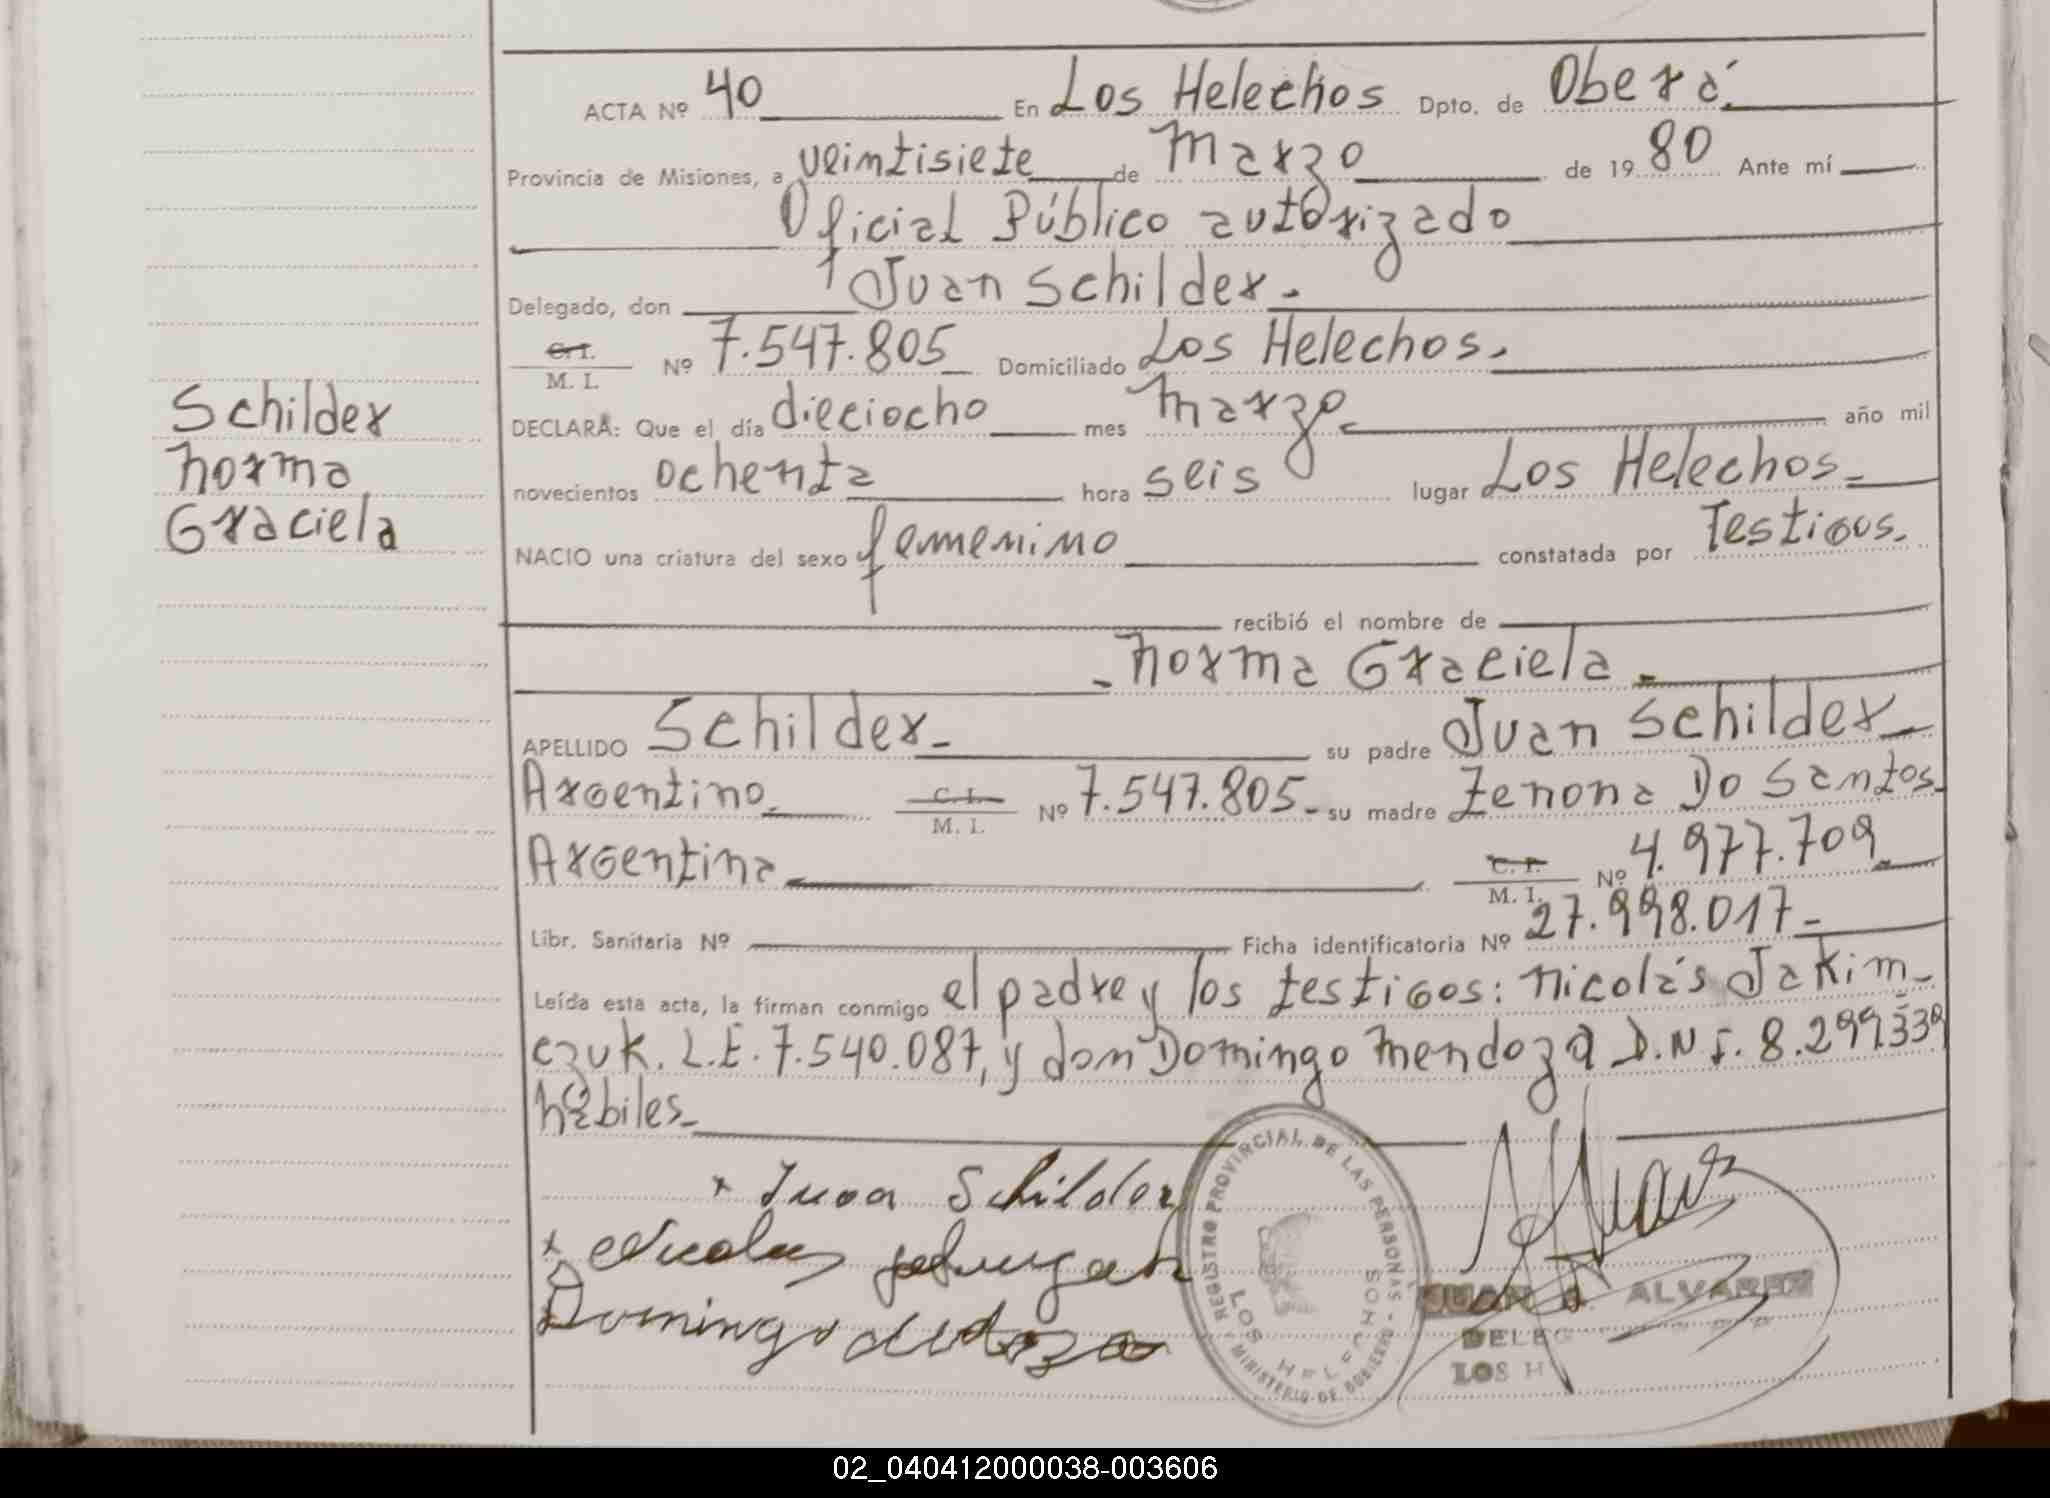 ACTA Nº 40 En Los Helechos Dpto. de Oberá.
Provincia de Misiones, a veintisiete de Marzo de 1980 Ante mí
Oficial Público autorizado
Delegado, don Juan Schilder.
C. I. / M. I. Nº 7.547.805 Domiciliado Los Helechos.
DECLARA: Que el día dieciocho mes Marzo año mil
novecientos ochenta hora seis lugar Los Helechos
NACIO una criatura del sexo femenino constatada por Testigos.
recibió el nombre de
- Norma Graciela.
APELLIDO Schilder su padre Juan Schilder
Argentino C. I. / M. I. Nº 7.547.805 su madre Zenona Do Santos
Argentina C. I. / M. I. Nº 4.977.709
Libr. Sanitaria Nº Ficha identificatoria Nº 27.998.017
Leída esta acta, la firman conmigo el padre y los testigos: Nicolás Jakim-
czuk. L.E. 7.540.087, y don Domingo Mendoza D.N.I. 8.299.339
hábiles
Schilder
Norma
Graciela
Juan Schilder
Nicolas
Domingo
REGISTRO PROVINCIAL DE LAS PERSONAS - MINISTERIO DE GOBIERNO -
LOS HELECHOS
JUAN ALVAREZ
DELEG
LOS H
02_040412000038-003606